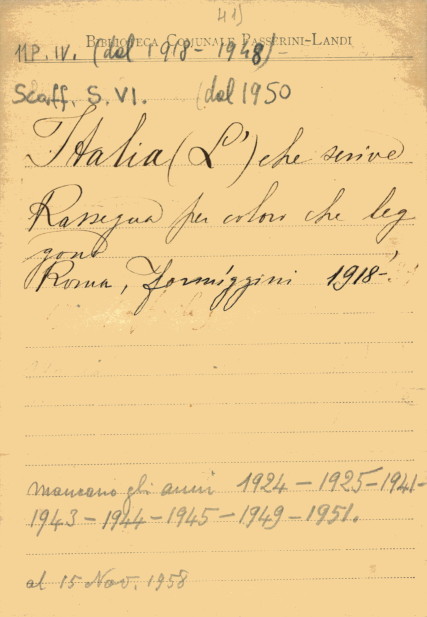 41)
BIBLIOTECA COMUNALE PASSERINI-LANDI
MP. IV. (dal 1918 - 1948) -
Scaff. S. VI. (dal 1950
Italia (L') che scrive
Rassegna per coloro che leg
gono
Roma, Formiggini 1918-'
mancano gli anni 1924 - 1925 - 1941 -
1943 - 1944 - 1945 - 1949 - 1951.
al 15 Nov. 1958